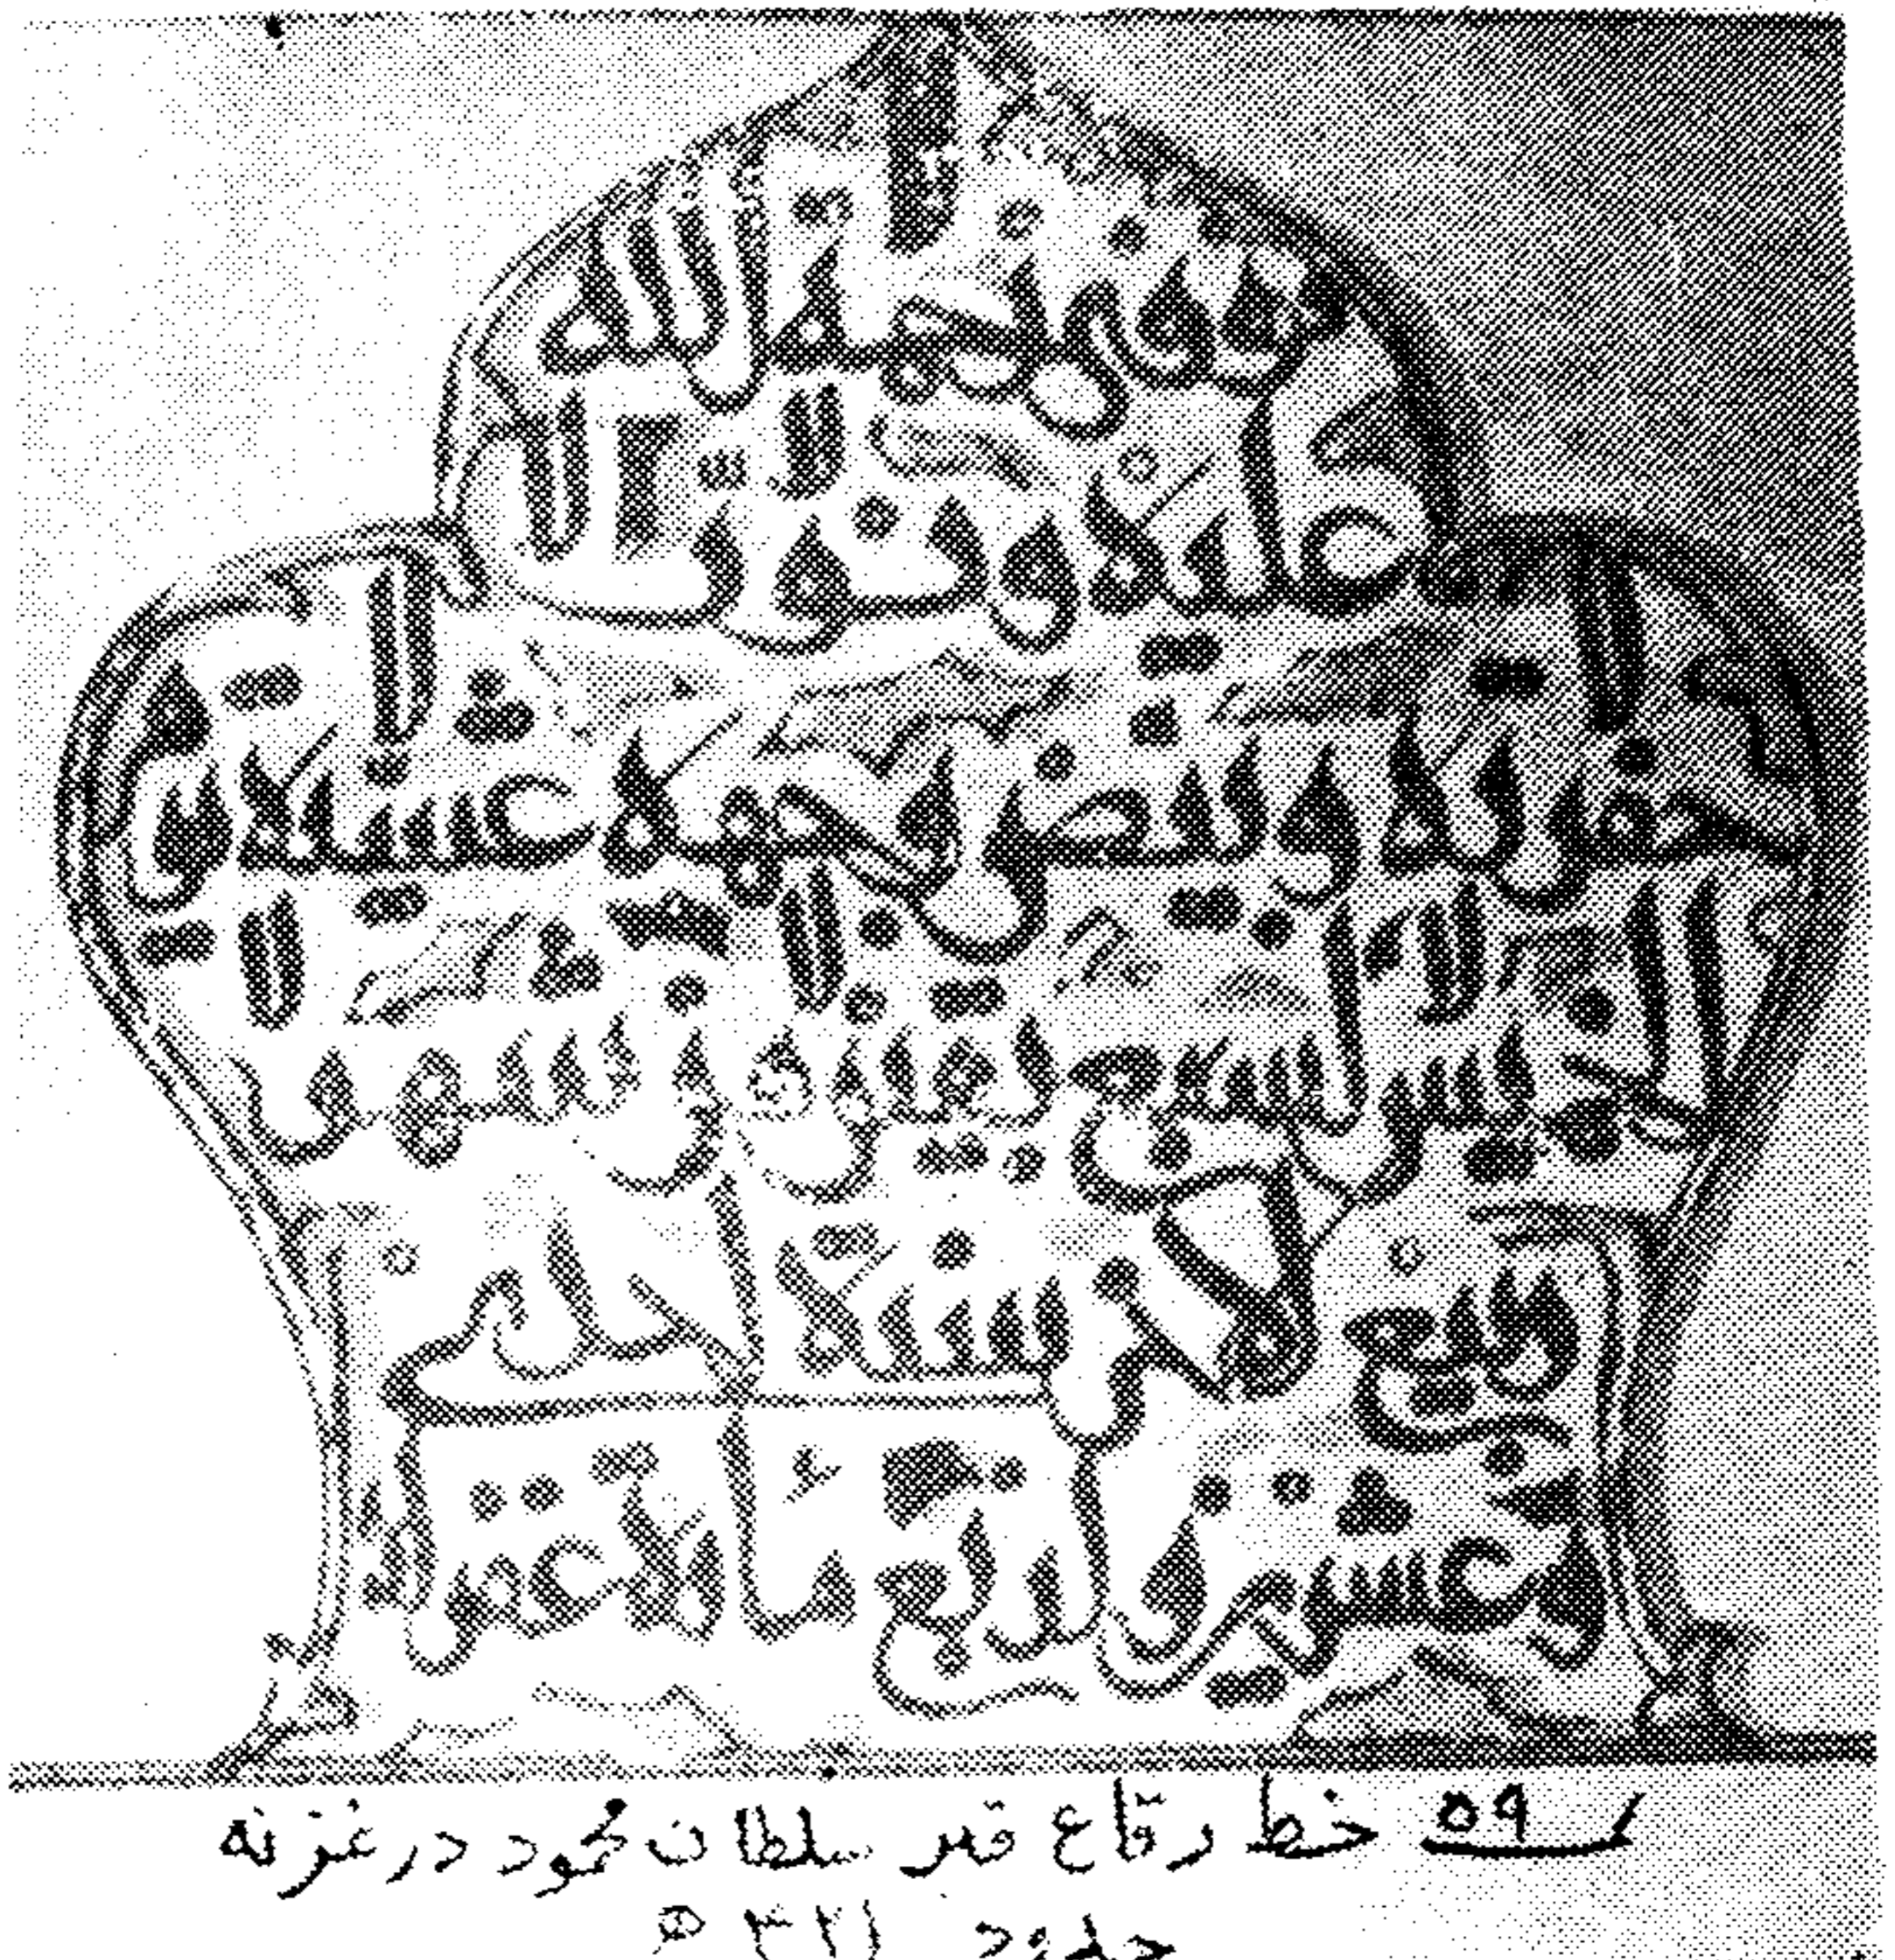 توفى رحمة الله
عليه ونور
حفرته وبيض وجهه عشية يوم
الخميس لسبع بقين من شهر
ربيع الآخر سنة احدى
وعشرين واربع مائة غفر
۵۹ خط رقاع قبر سلطان محمود در غزنه
حدود ۴۲۱ ه